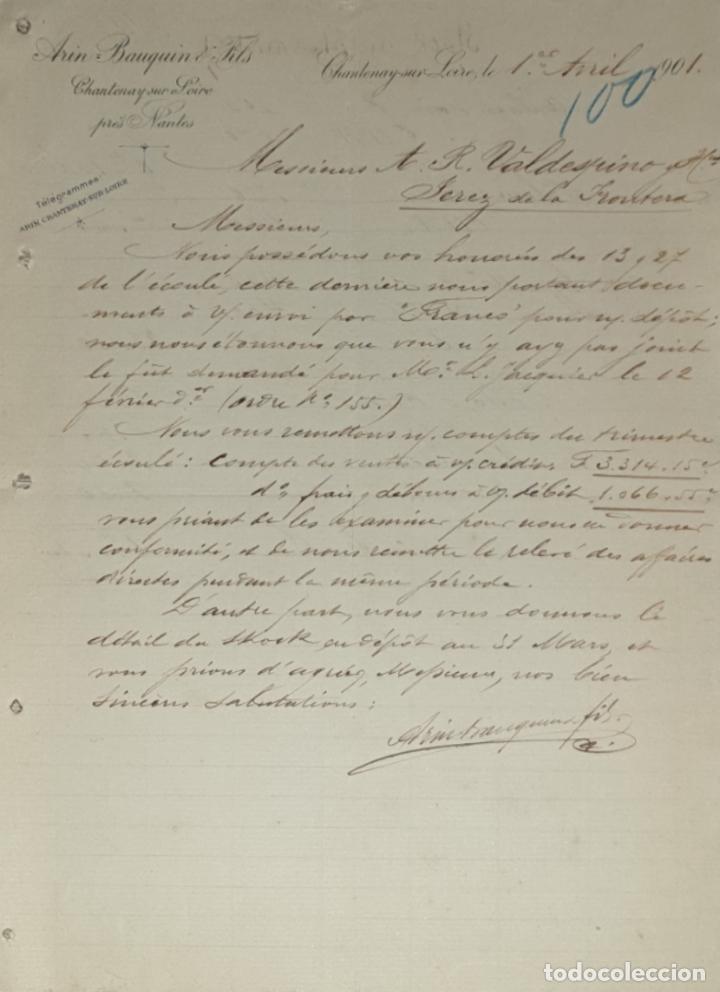 Arin-Bauquin & Fils
Chantenay-sur-Loire
près Nantes
Télégrammes
ARIN CHANTENAY-SUR-LOIRE
Chantenay-sur-Loire, le 1er Avril 1901.
100
Messieurs A. R. Valdespino y Hno
Jerez de la Frontera
Messieurs,
Nous possédons vos honorées des 13 & 27
de l'écoulé, cette dernière nous portant docu-
ments à v/. envoi par "Franco" pour n/. dépôt;
nous nous étonnons que vous n'y ayez pas joint
le fût demandé pour Mr. L. Jacquier le 12
février dr. (ordre No. 155.)
Nous vous remettons n/. comptes du trimestre
écoulé: compte des ventes à v/. crédit F 3.314.15c
do. frais & débours à v/. débit 1.066.55c
vous priant de les examiner pour nous en donner
conformité, et de nous remettre le relevé des affaires
directes pendant la même période.
D'autre part, nous vous donnons le
détail du stock en dépôt au 31 Mars, et
vous prions d'agréer, Messieurs, nos bien
sincères salutations:
Arin Bauquin & fils
todocoleccion